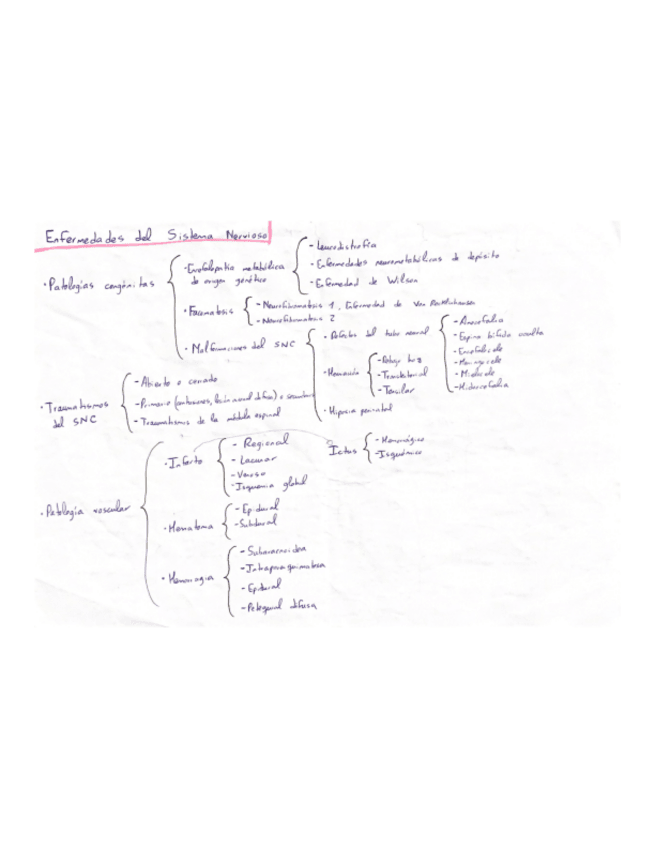 Enfermedades del Sistema Nervioso
· Patologías congénitas
· Encefalopatía metabólica
de origen genético
- Leucodistrofia
- Enfermedades neurometabólicas de depósito
- Enfermedad de Wilson
· Facomatosis
- Neurofibromatosis 1. Enfermedad de Von Recklinhausen
- Neurofibromatosis 2
· Malformaciones del SNC
- Defectos del tubo neuronal
- Anencefalia
- Espina bífida oculta
- Encefalocele
- Meningocele
- Mielocele
- Hidrocefalia
· Herniación
- Debajo hoz
- Transtentorial
- Tonsilar
- Hipoxia perinatal
· Traumatismos
del SNC
- Abierto o cerrado
- Primario (contusiones, lesión axonal difusa) o secundario
- Traumatismos de la médula espinal
· Patología vascular
· Infarto
- Regional
- Lacunar
- Venoso
- Isquemia global
Ictus
- Hemorrágico
- Isquémico
· Hematoma
- Epidural
- Subdural
· Hemorragia
- Subaracnoidea
- Intraparenquimatosa
- Epidural
- Petequial difusa